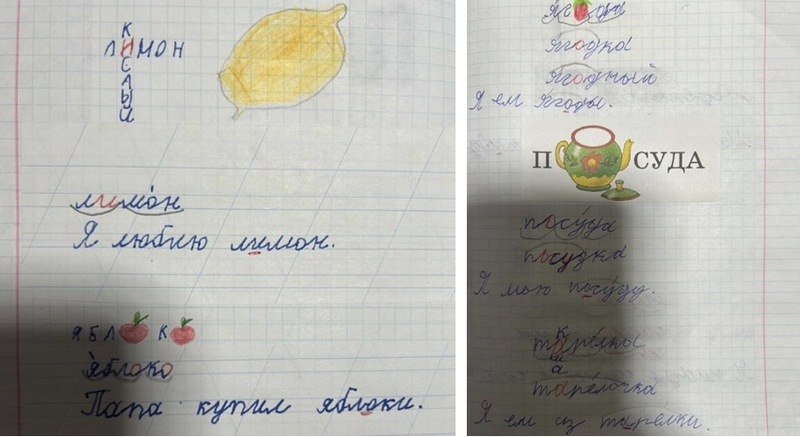 К
ЛИМОН
С
Л
Ы
Й
лимон
Я люблю лимон.
ЯБЛ К
яблоко
Папа купил яблоки.
яг да
ягодка
ягодный
Я ем ягоды.
П СУДА
посуда
посудка
Я мою посуду.
к
тарелка
ш
а
тарелочка
Я ем из тарелки.